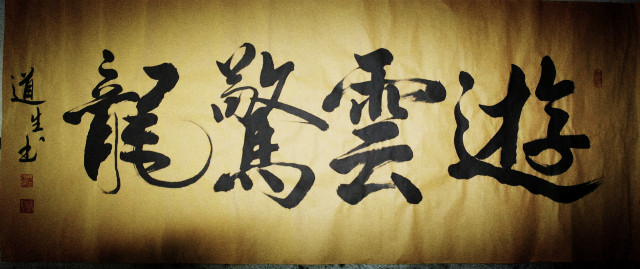 遊雲驚龍
道生書